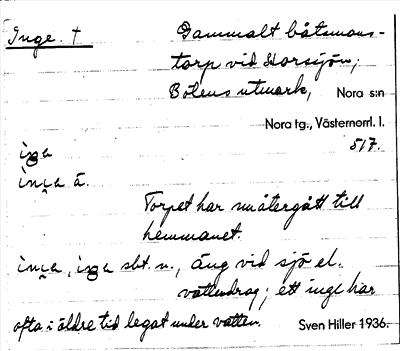 Inge. †
Gammalt båtsmans-
torp vid Storsjön,
Bölens utmark, Nora s:n
Nora tg., Västernorrl. l.
517.
iŋa
iŋa ä.
Torpet har nu återgått till
hemmanet.
iŋa, iŋa sbt. n., äng vid sjö el.
vattudrag; ett inge har
ofta i äldre tid legat under vatten.
Sven Hiller 1936.